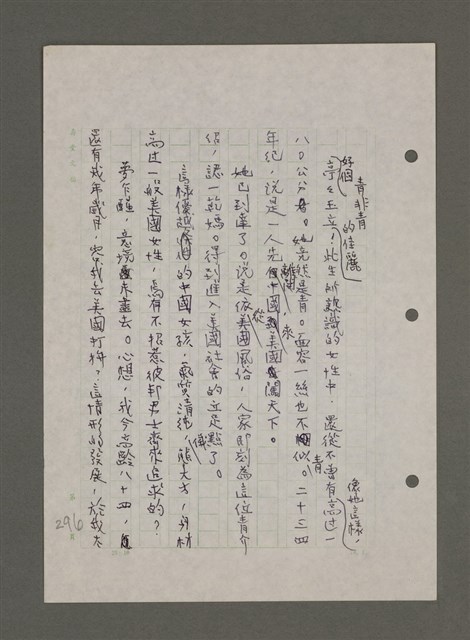 好個青非青的佳麗
亭亭玉立!此生所認識的女性中,還從不曾有像她這樣,高过一
八〇公分者。她竟然是青。面容一絲也不似青。二十三四
年紀,说是一人先離開中國,來美國闖天下。
她已到達了。说是依從美國風俗,人家即刻為這位青介
紹,認一乾媽。得到進入美國社會的立足點了。
這樣優越條件的中國女孩,氣質清純,儀態大方,身材
高过一般美國女性,焉有不招惹彼邦男士齊來追求的?
夢乍醒,意境還未盡去。心想,我今高齡八十四,
還有幾年歲月,容我去美國打拚?這情形的發展,於我太
296